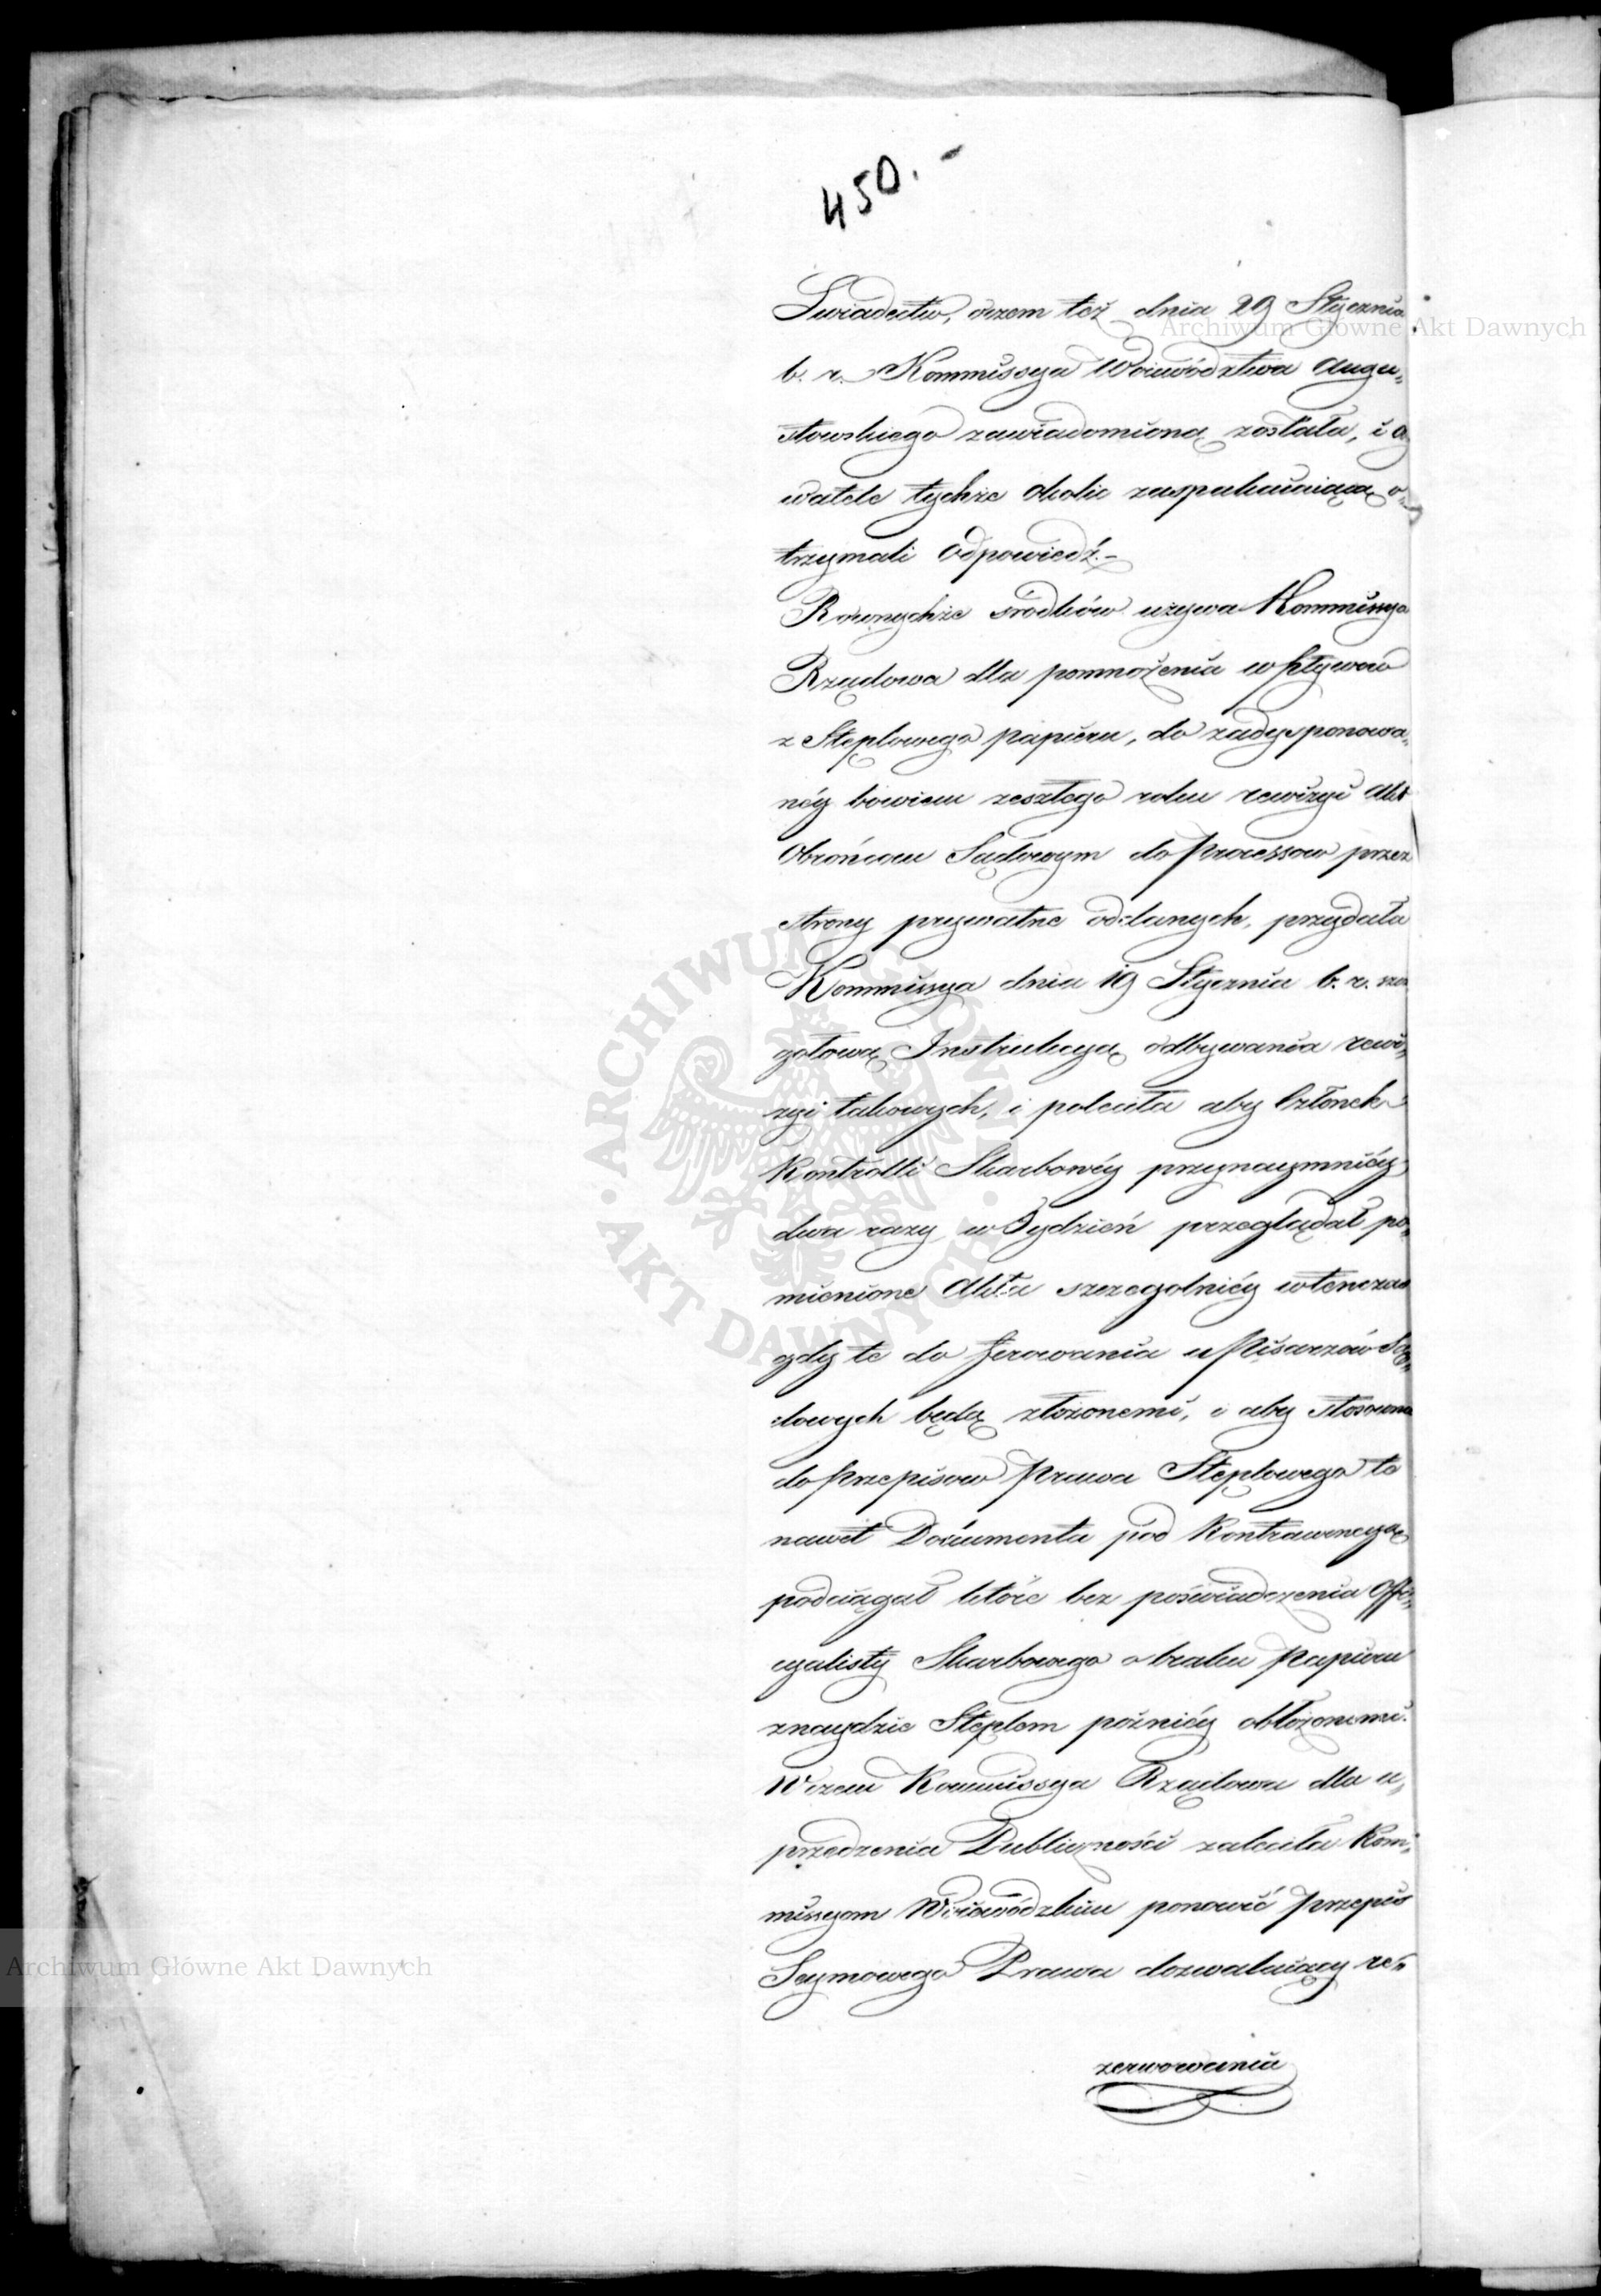 450.-
Swiadectw, oczem też dnia 29 Stycznia
b. r. Kommissya Woiewództwa Augu„
stowskiego zawiadomioną została, i O
watele tychże okolic zaspakaiaiącą o„
trzymali Odpowiedź.-
Rownychże srodków używa Kommissya
Rządowa dla pomnożenia wpływow
z Stęplowego papieru, do zadysponowa„
néy bowiem zeszłego roku rewizyi Akt
Obrońcom Sądowym do Processow przez
strony prywatne oddanych, przydała
Kommissya dnia 19 Stycznia b. r.
gołową Instrukcyą odbywania rewi„
zyi takowych, i poleciła aby Członek
Kontrolli Skarbowéy przynaymniéy
dwa razy w Tydzień przeglądał po„
mienione Akta szczegolniéy wtenczas
gdy te do ferowania u Pisarzów Są„
dowych będą złożonemi, i aby stosowne
do Przepisow Prawa Stęplowego te
nawet Documenta pod Kontrawencyą
podciągał które bez poświadczenia Offi„
cyalisty Skarbowego o braku Papieru
znaydzie Stęplem poźniéy obłożonemi.
Wczem Kommissya Rządowa dla u„
przedzenia Publiczności zaleciła Kom„
missyom Woiewódzkim ponowić Przepis
Seymowego Prawa dozwalaiący re„
zerwowania
Archiwum Główne Akt Dawnych
Archiwum Główne Akt Dawnych
ARCHIWUM GŁÓWNE AKT DAWNYCH